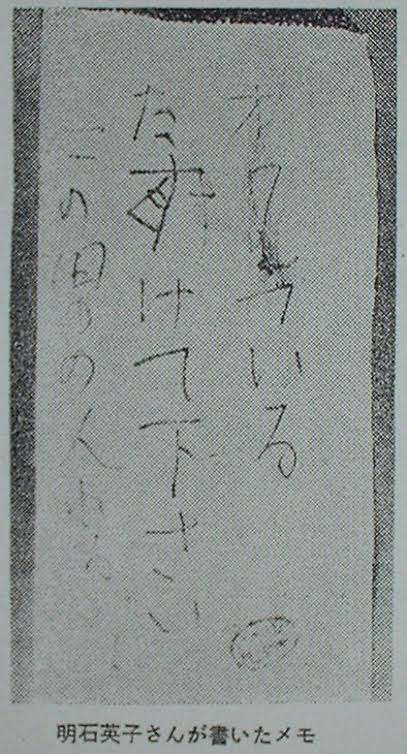 オワれている
たすけて下さい
この男の人わる
明石英子さんが書いたメモ